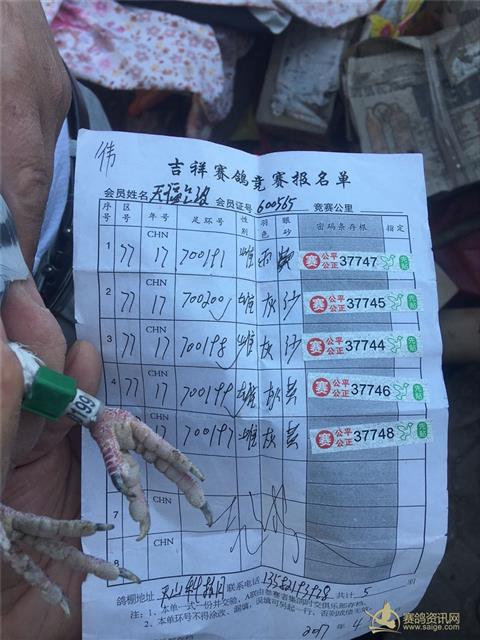 伟
吉祥赛鸽竞赛报名单
会员姓名 会员证号 600565 竞赛公里
序号 区号 年号 足环号 性别 羽色 眼砂 密码条存根 指定
CHN
1 77 17 700191 雄 雨 黄 赛 公平公正 37747
CHN
2 77 17 700200 雄 灰 沙 赛 公平公正 37745
CHN
3 77 17 700198 雄 灰 沙 赛 公平公正 37744
CHN
4 77 17 700199 雄 灰 黄 赛 公平公正 37746
CHN
17 700197 雄 灰 黄 赛 公平公正 37748
CHN
CHN
7
CHN
8
199
鸽棚地址 联系电话 共计 5 羽
注：1、本单一式一份并交验，A联由参赛者集鸽时交俱乐部存档。
2、本单环号不得涂改、漏填，误填可另起一行，否则成绩无效。
2017 年 4
赛鸽资讯网
www.saige.com